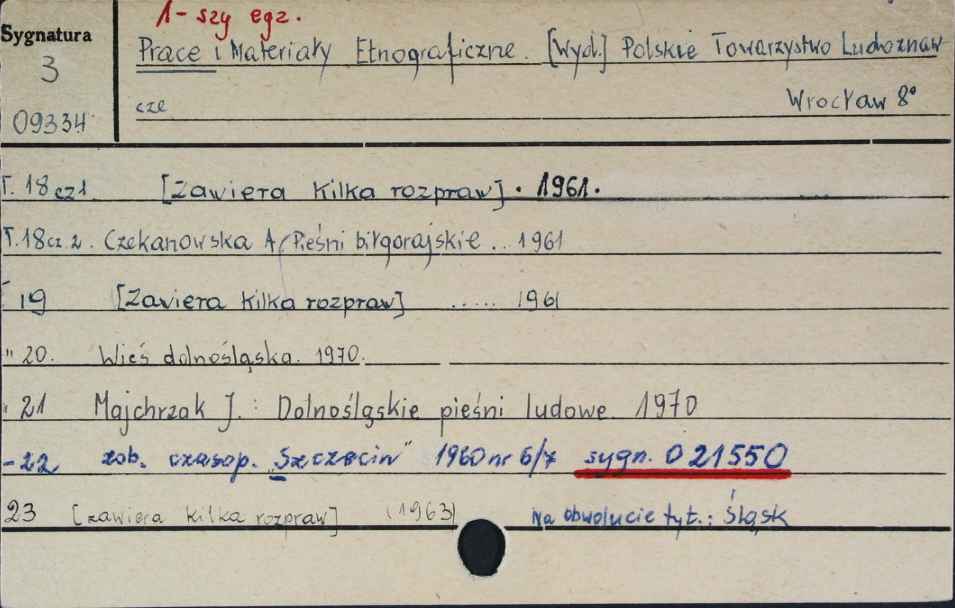 1-szy egz.
Sygnatura
3
09334
Prace i Materiały Etnograficzne. [Wyd.] Polskie Towarzystwo Ludoznaw
cze Wrocław 8°
T. 18 cz 1. [Zawiera kilka rozpraw] . 1961.
T. 18 cz. 2. Czekanowska A. Pieśni biłgorajskie .. 1961
19 [Zawiera kilka rozpraw] ..... 1961
" 20. Wieś dolnośląska. 1970.
" 21 Majchrzak J. : Dolnośląskie pieśni ludowe. 1970
- 22 zob. czasop. „Szczecin" 1960 nr 6/7 sygn. 021550
23 [zawiera kilka rozpraw] (1963) Na obwolucie tyt.: Śląsk